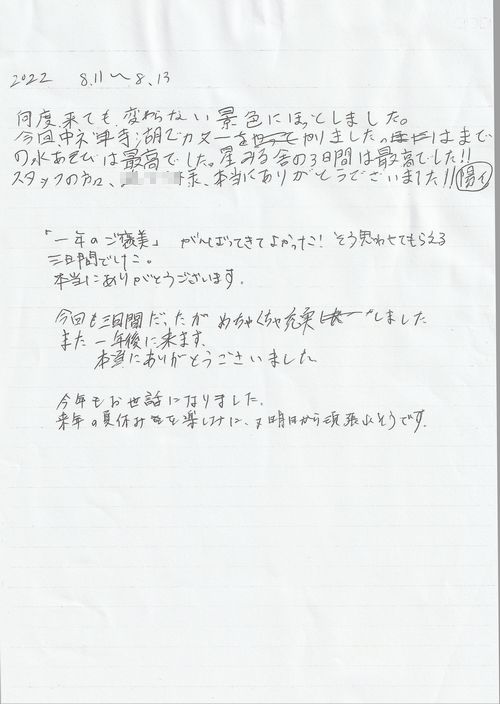 2022 8.11〜8.13
何度来ても変わらない景色にほっとしました。
今回中禅寺湖でカヌーをやりました。はまで
の水あそびは最高でした。星みる舎の3日間は最高でした!!
スタッフの方々、様、本当にありがとうございました!!
「一年のご褒美」 がんばってきてよかった! そう思わせてもらえる
三日間でした。
本当にありがとうございます。
今回も三日間だったが めちゃくちゃ充実しました
また一年後に来ます。
本当にありがとうございました
今年もお世話になりました。
来年の夏休みを楽しみに、又明日から頑張れそうです。